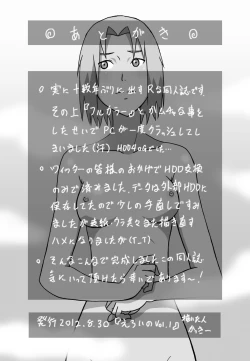 ◎あとがき◎
○実に十数年ぶりに出すRな同人誌です
その上『フルカラー』とかムチャな事を
したせいでPCが一度クラッシュしてし
まいました(汗) HDD400Gでした…
○ツイッターの皆様のおかげでHDD交換
のみで済みました、データは外部HDDに
保存してたので少しの手直しですみ
ましたが表紙・ウラ表々また描き直す
ハメになりましたが(T_T)
○そんなこんなで完成しましたこの同人誌
気にいって頂けたら幸いであります～!
発行2012.8.30『えろいのVol.1』